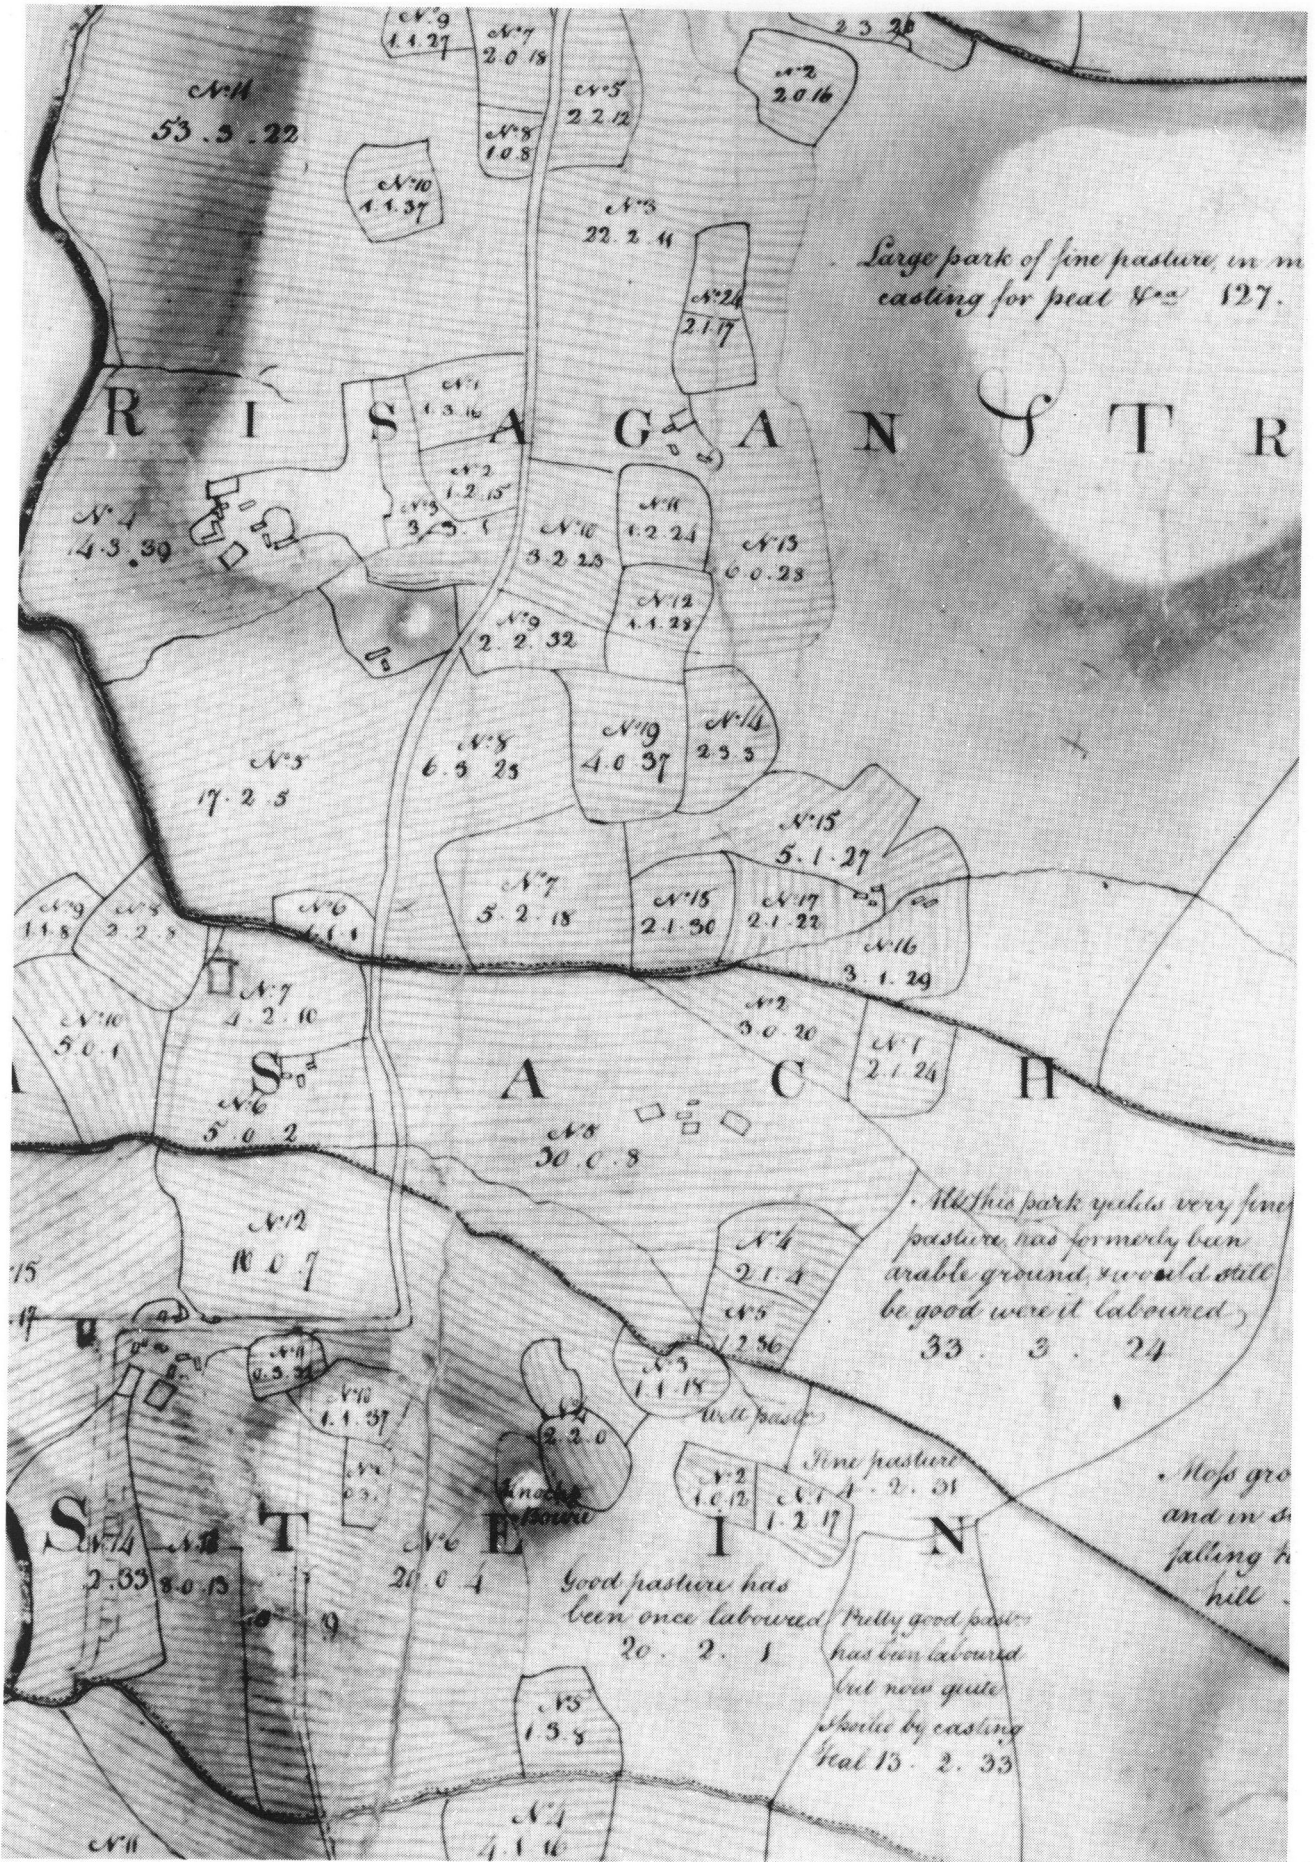 No. 9
1.1.27
No. 7
2 0 18
2 3 20
No. 2
2 0 16
No. 5
2 2 12
No. 11
53.3.22
No. 8
1 0 8
No. 10
1.1.37
No. 3
22.2.11
Large park of fine pasture, in m
casting for peat &ca 127.
No. 24
2.1.17
No. 1
1.3.16
R I S A G A N S T R
No. 2
1.2.15
No. 3
3.3.1
No. 11
1.2.24
No. 4
14.3.39
No. 10
3.2 23
No. 13
6.0.28
No. 12
1.1.28
No. 9
2.2.32
No. 14
2.3.3
No. 19
4.0 37
No. 8
6.3 23
No. 5
17.2.5
No. 15
5.1.27
No. 7
5.2.18
No. 18
2.1.30
No. 17
2.1.22
No. 9
1.1.8
No. 8
2.2.8
No. 6
1.1
No. 16
3.1.29
No. 7
4.2.10
No. 2
3.0.20
No. 10
5.0.1
No. 1
2.1.24
S A C H
No. 6
5.0.2
No. 8
30.0.8
All this park yields very fine
pasture, has formerly been
arable ground, & would still
be good were it laboured,
33. 3. 24
No. 12
10 0 7
No. 4
2.1.4
15
.17
No. 5
1.2.36
No. 11
0.3.
No. 3
1.1.18
No. 10
1.1.37
2.2.0
Wett pastr
Fine pasture
4.2.31
No. 2
1.0.12
No. 1
1.2.17
Moss gro
and in s
falling
hill
Knock
Bowie
S T E I N
No. 14
2.33
8.0.13
No. 6
20.0 4
9
Good pasture has
been once laboured
20. 2. 1
Pretty good pastr
has been laboured
but now quite
spoiled by casting
feal 13. 2. 33
No. 5
1.3.8
No. 4
4.1.16
No. 11